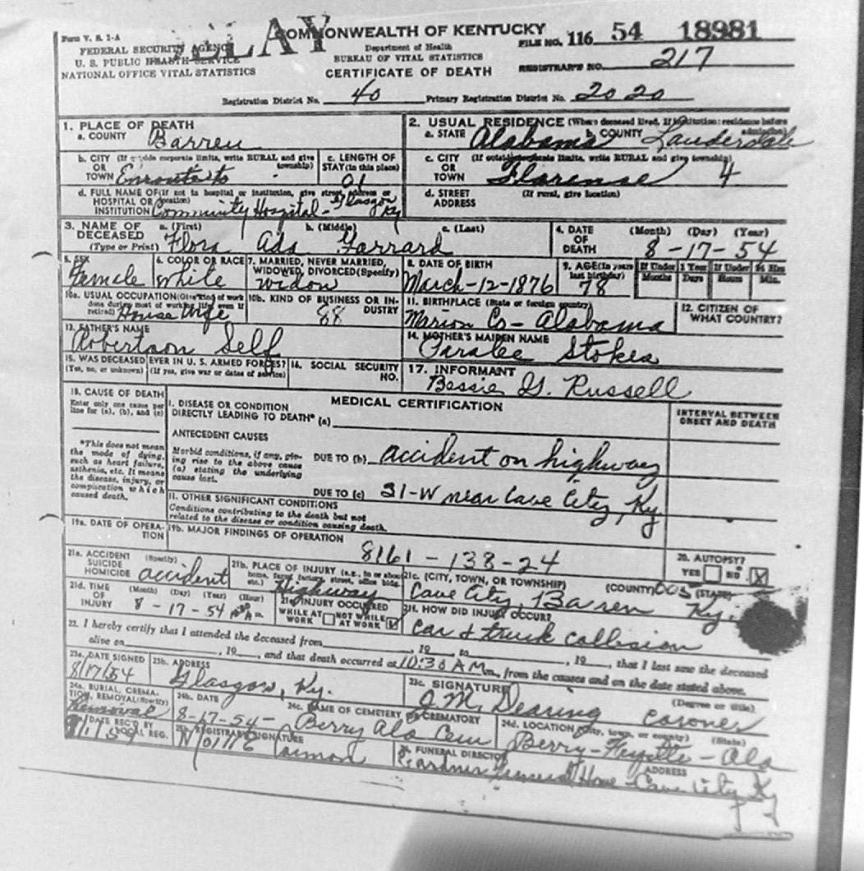 Form V. S. 1-A
COMMONWEALTH OF KENTUCKY
FILE NO. 116 54 18981
FEDERAL SECURITY AGENCY
U. S. PUBLIC HEALTH SERVICE
NATIONAL OFFICE VITAL STATISTICS
Department of Health
BUREAU OF VITAL STATISTICS
CERTIFICATE OF DEATH
REGISTRAR'S NO. 217
Registration District No. 40 Primary Registration District No. 2020
1. PLACE OF DEATH
a. COUNTY Barren
2. USUAL RESIDENCE (Where deceased lived. If institution: residence before admission)
a. STATE Alabama b. COUNTY Lauderdale
b. CITY (If outside corporate limits, write RURAL and give township)
OR TOWN Enroute to
c. LENGTH OF STAY (in this place)
01
c. CITY (If outside corporate limits, write RURAL and give township)
OR TOWN Florense 4
d. FULL NAME OF (If not in hospital or institution, give street address or location)
HOSPITAL OR INSTITUTION Community Hospital - Glasgow Ky
d. STREET ADDRESS (If rural, give location)
3. NAME OF DECEASED (Type or Print)
a. (First) b. (Middle) c. (Last)
Flora Ada Garrard
4. DATE OF DEATH (Month) (Day) (Year)
8-17-54
5. SEX
Female
6. COLOR OR RACE
White
7. MARRIED, NEVER MARRIED, WIDOWED, DIVORCED (Specify)
Widow
8. DATE OF BIRTH
March-12-1876
9. AGE (In years last birthday)
78
If Under 1 Year
Months Days
If Under 24 Hrs
Hours Min.
10a. USUAL OCCUPATION (Give kind of work done during most of working life, even if retired)
House Wife
10b. KIND OF BUSINESS OR INDUSTRY
88
11. BIRTHPLACE (State or foreign country)
Marion Co - Alabama
12. CITIZEN OF WHAT COUNTRY?
13. FATHER'S NAME
Robertson Self
14. MOTHER'S MAIDEN NAME
Stokes
15. WAS DECEASED EVER IN U. S. ARMED FORCES?
(Yes, no, or unknown) (If yes, give war or dates of service)
16. SOCIAL SECURITY NO.
17. INFORMANT
Bessie G. Russell
18. CAUSE OF DEATH
Enter only one cause per line for (a), (b), and (c)
MEDICAL CERTIFICATION
INTERVAL BETWEEN ONSET AND DEATH
I. DISEASE OR CONDITION
DIRECTLY LEADING TO DEATH* (a)
*This does not mean the mode of dying, such as heart failure, asthenia, etc. It means the disease, injury, or complication which caused death.
ANTECEDENT CAUSES
Morbid conditions, if any, giving rise to the above cause (a) stating the underlying cause last.
DUE TO (b) accident on highway
DUE TO (c) 31-W near Cave City, Ky
II. OTHER SIGNIFICANT CONDITIONS
Conditions contributing to the death but not related to the disease or condition causing death.
19a. DATE OF OPERATION
19b. MAJOR FINDINGS OF OPERATION
8161 - 138-24
20. AUTOPSY?
YES NO X
21a. ACCIDENT SUICIDE HOMICIDE (Specify)
accident
21b. PLACE OF INJURY (e.g., in or about home, farm, factory, street, office bldg. etc.)
Highway
21c. (CITY, TOWN, OR TOWNSHIP) (COUNTY) 005 (STATE)
Cave City, Baren Ky.
21d. TIME OF INJURY (Month) (Day) (Year) (Hour)
8-17-54
21e. INJURY OCCURRED
WHILE AT WORK NOT WHILE AT WORK
21f. HOW DID INJURY OCCUR?
car & truck collision
22. I hereby certify that I attended the deceased from , 19 to , 19 , that I last saw the deceased
alive on , 19 , and that death occurred at 10:30 AM m., from the causes and on the date stated above.
23a. DATE SIGNED
8/17/54
23b. ADDRESS
Glasgow, Ky.
23c. SIGNATURE (Degree or title)
J. M. Dearing coroner
24a. BURIAL, CREMATION, REMOVAL (Specify)
Removal
24b. DATE
8-17-54
24c. NAME OF CEMETERY OR CREMATORY
Berry Ala Cem
24d. LOCATION (City, town, or county) (State)
Berry - Fayette - Ala
DATE REC'D BY LOCAL REG.
REGISTRAR'S SIGNATURE
FUNERAL DIRECTOR ADDRESS
Gardner Funeral Home - Cave City Ky